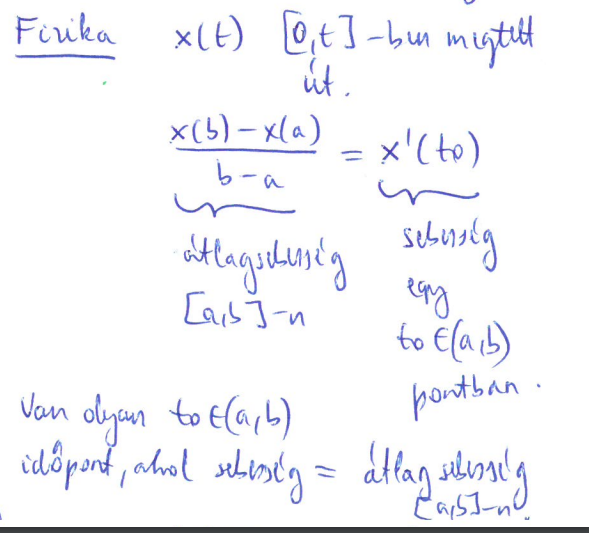 Fizika x(t) [0,t]-ben megtett
út.
x(b)-x(a) / b-a = x'(t0)
átlagsebesség
[a,b]-n
sebesség
egy
t0 ∈ (a,b)
pontban.
Van olyan t0 ∈ (a,b)
időpont, ahol sebesség = átlagsebesség
[a,b]-n.